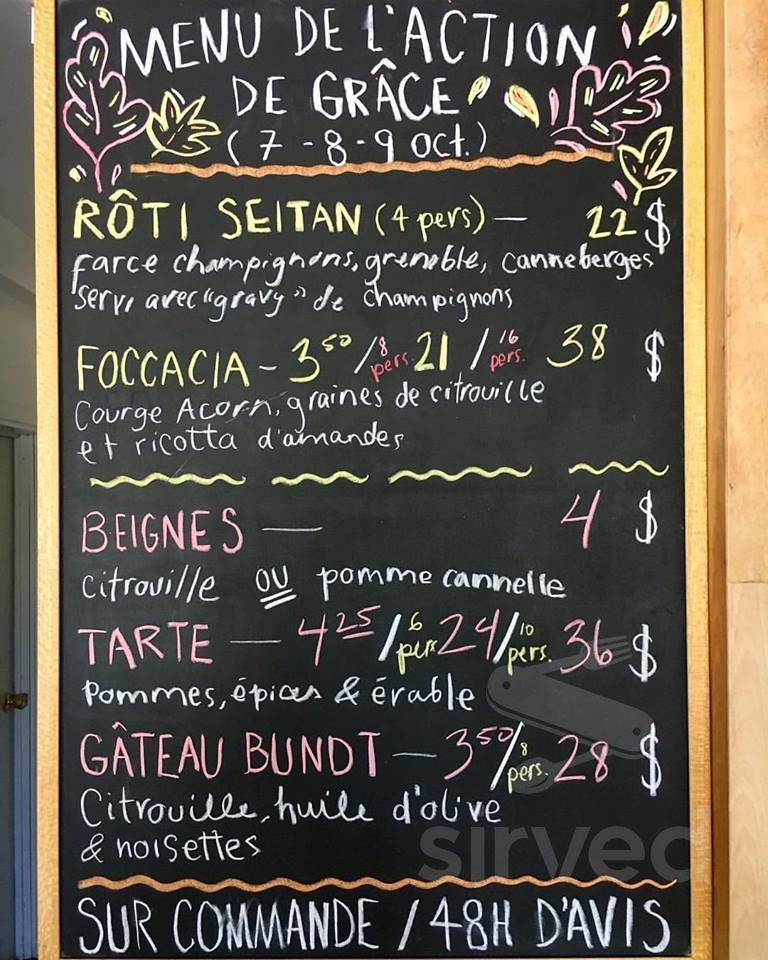 MENU DE L'ACTION
DE GRÂCE
(7-8-9 oct.)
RÔTI SEITAN (4 pers) — 22 $
farce champignons, grenoble, canneberges
servi avec "gravy" de champignons
FOCCACIA - 3 50 / 8 pers. 21 / 16 pers. 38 $
Courge Acorn, graines de citrouille
et ricotta d'amandes
BEIGNES — 4 $
citrouille ou pomme cannelle
TARTE — 4 25 / 6 pers 24 / 10 pers. 36 $
Pommes, épices & érable
GÂTEAU BUNDT — 3 50 / 8 pers. 28 $
Citrouille, huile d'olive
& noisettes
sirvec
SUR COMMANDE / 48H D'AVIS